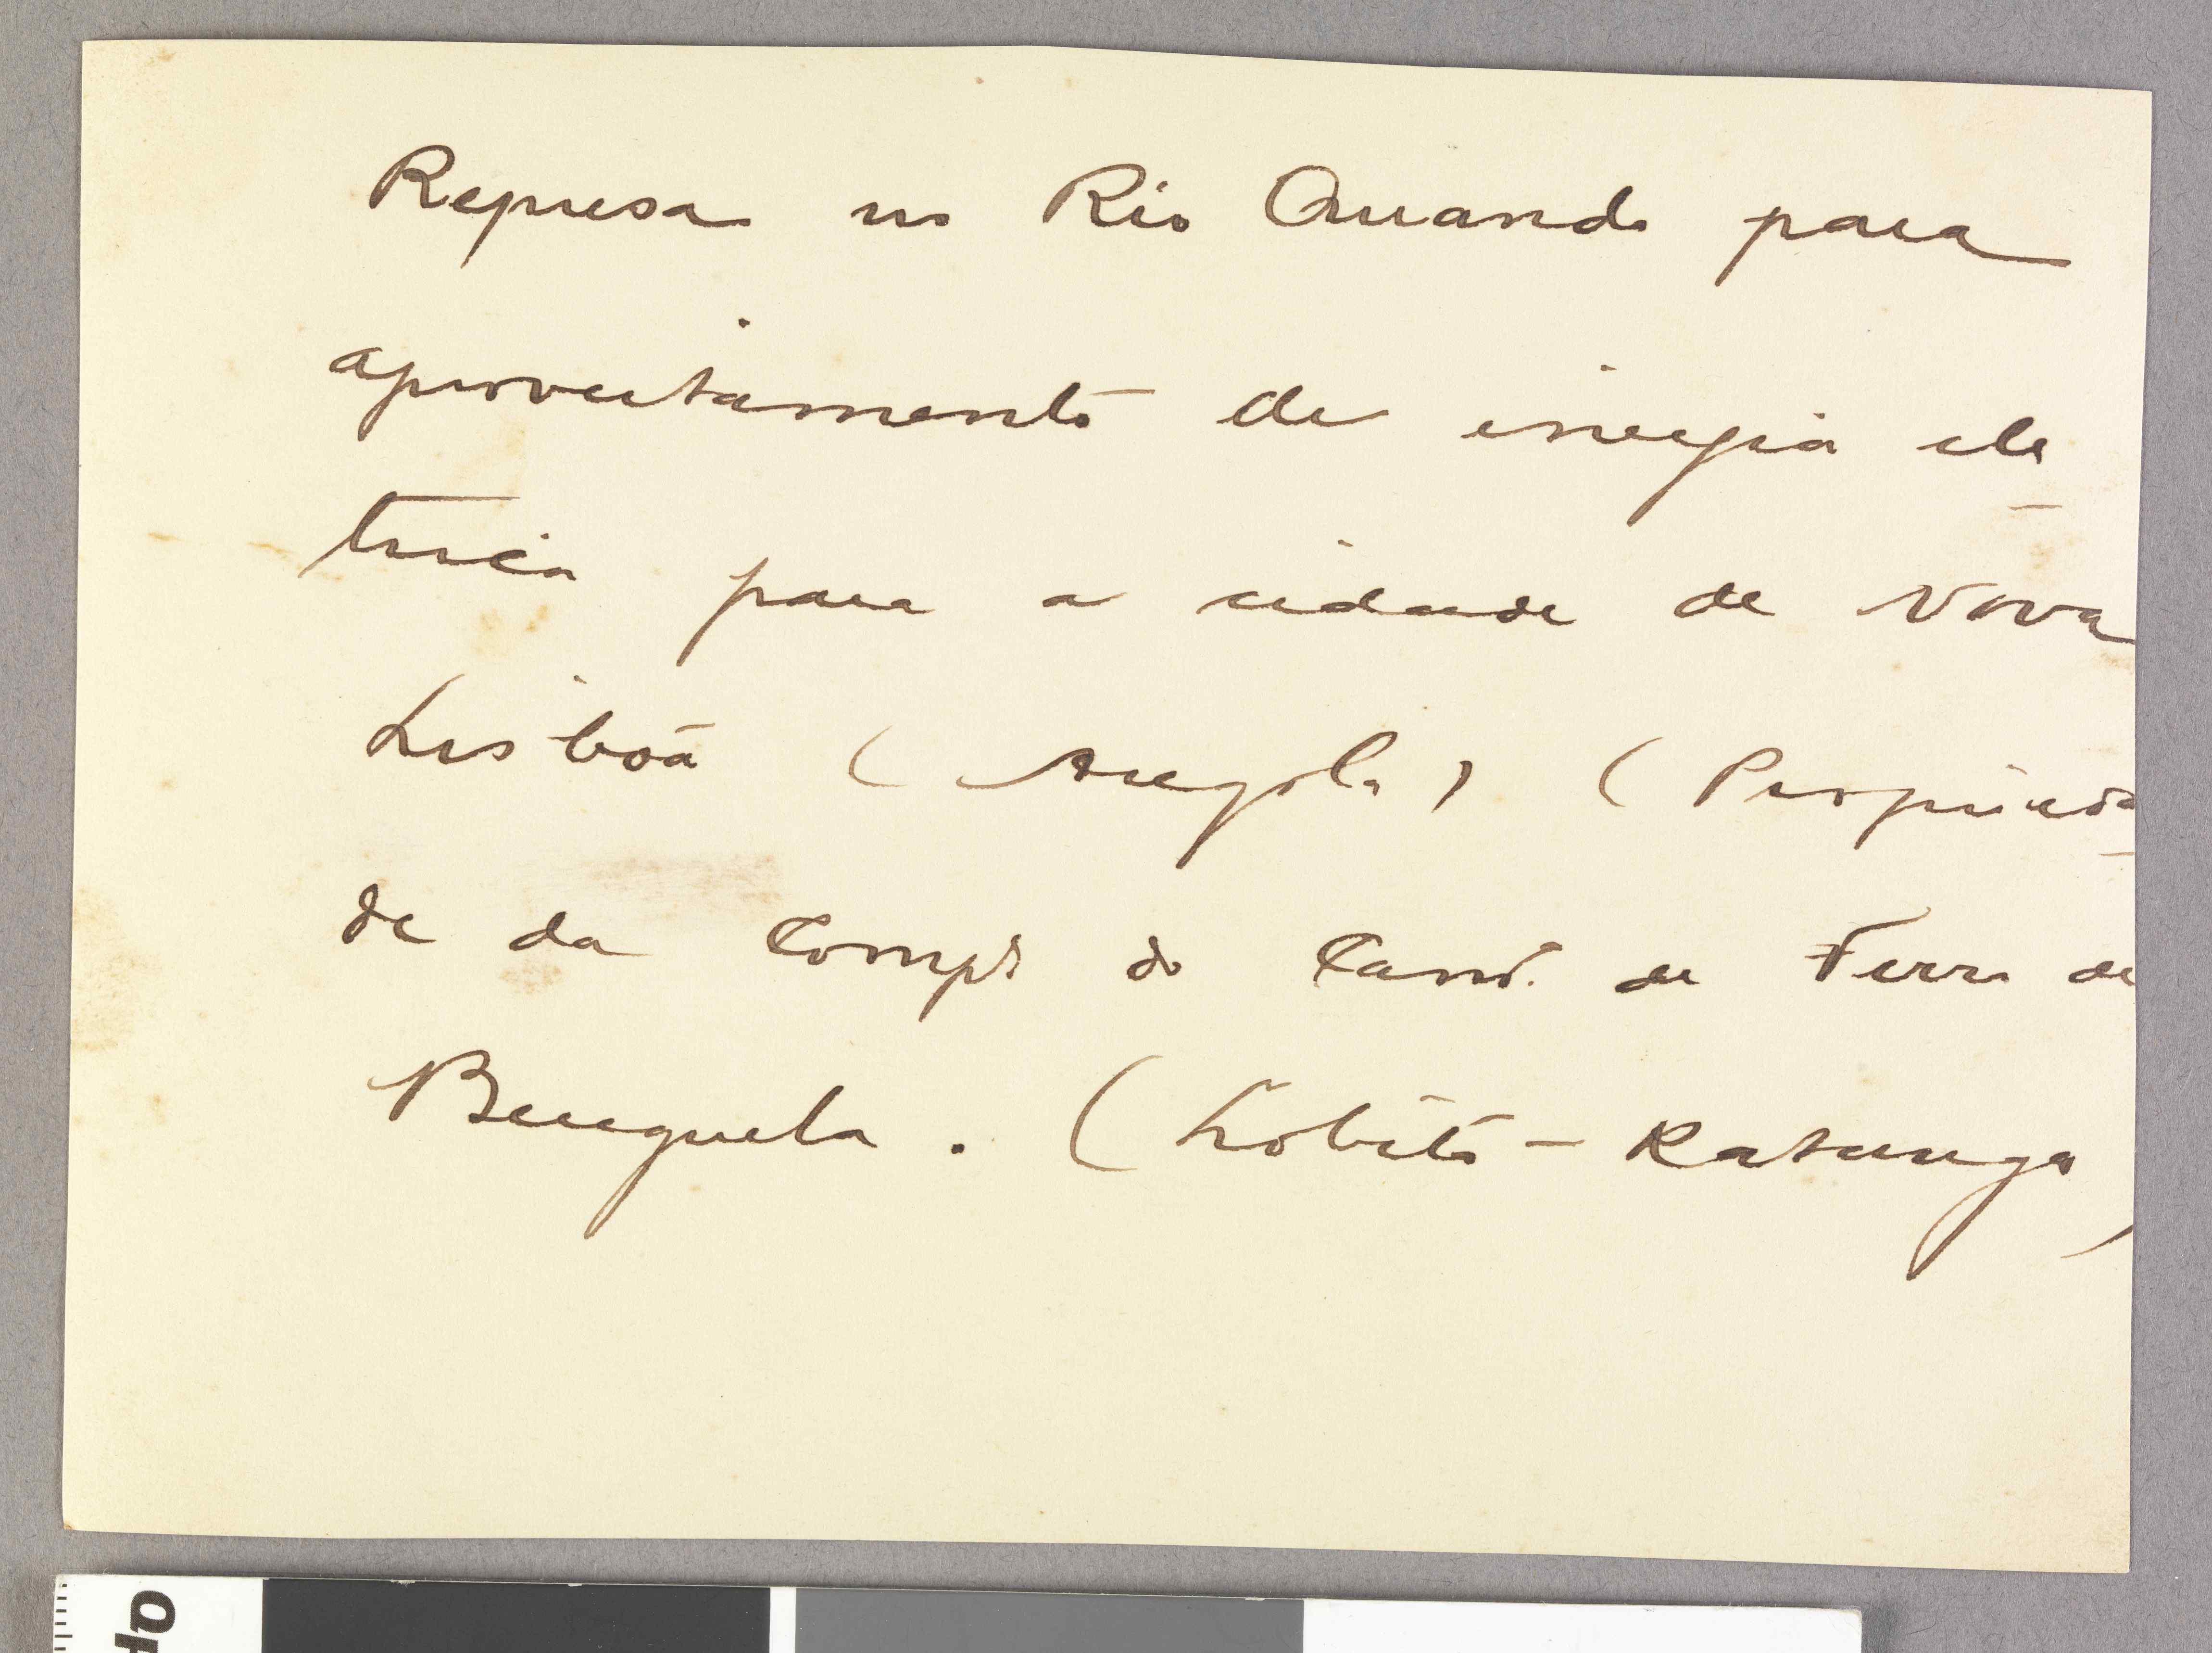 Represa no Rio Quando para
aproveitamento de energia ele
trica para a cidade de Nova
Lisboa (Angola) (Proprieda
de da Compª do Camº. de Ferro de
Benguela. (Lobito - Katanga)